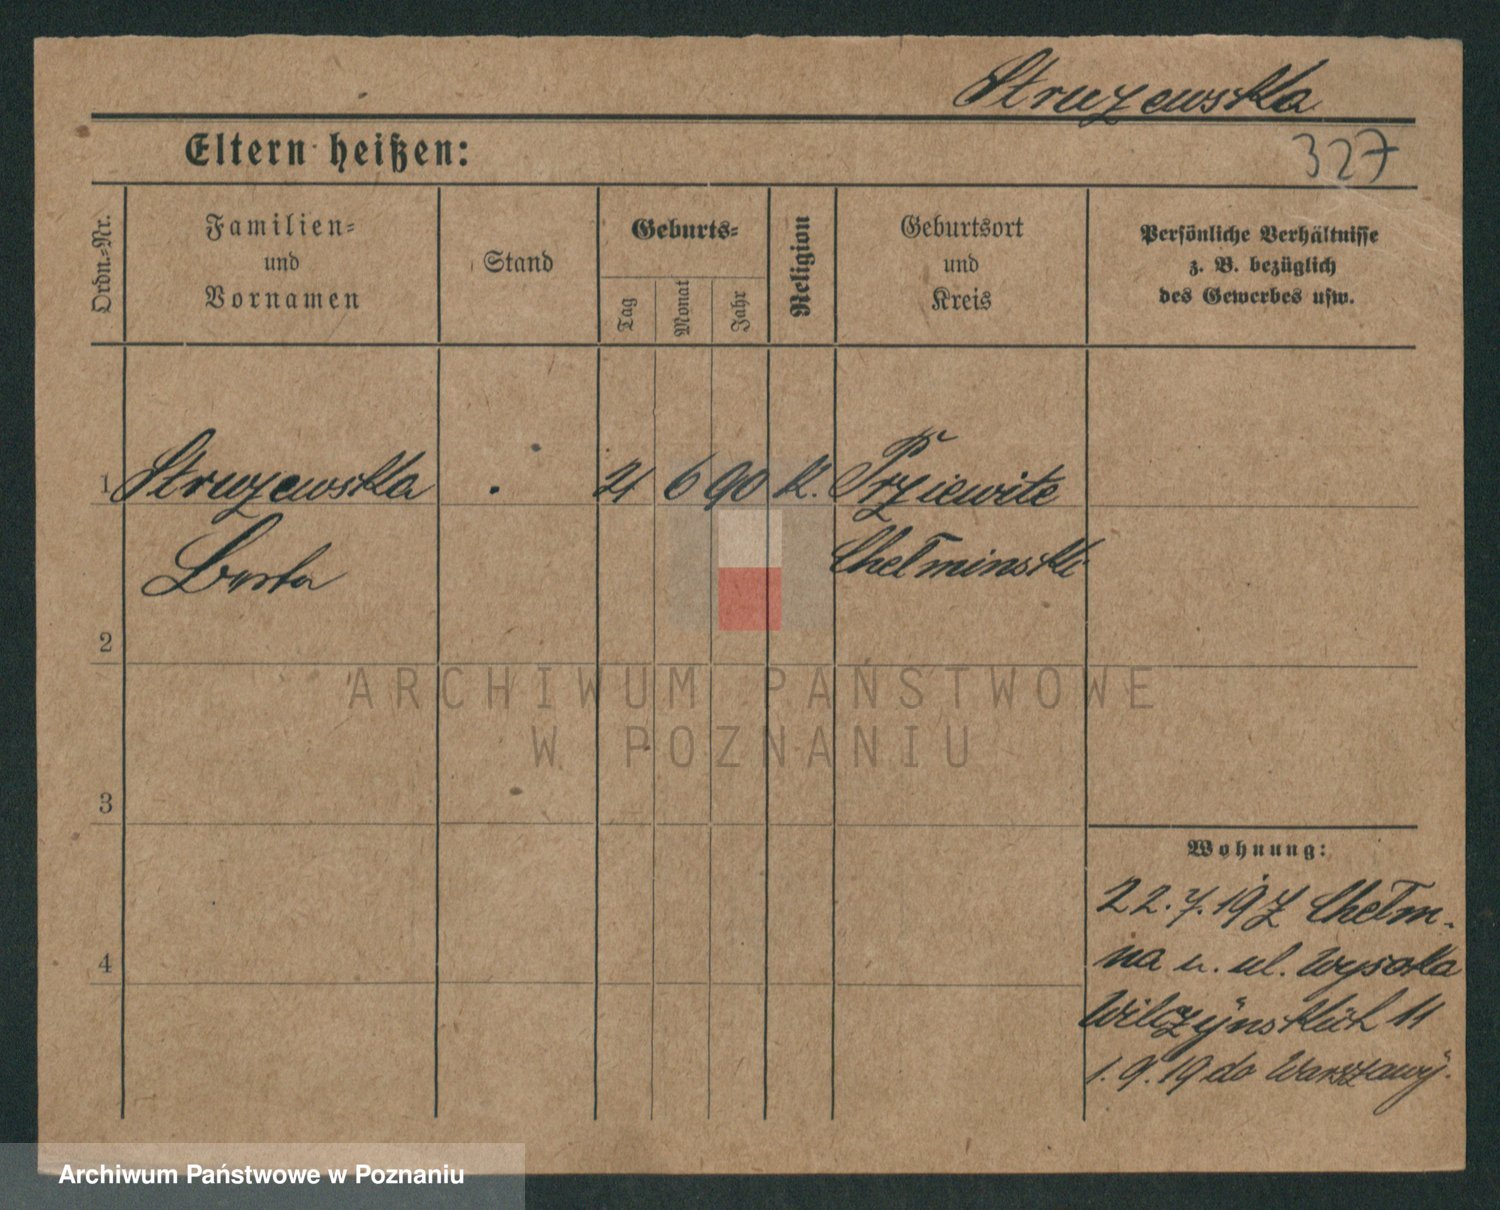 Struzewska
Eltern heißen:
327
Ordn.-Nr.
Familien-
und
Vornamen
Stand
Geburts-
Tag
Monat
Jahr
Religion
Geburtsort
und
Kreis
Persönliche Verhältnisse
z. B. bezüglich
des Gewerbes usw.
1 Struzewska . 21 6 90 K.
Chełminski
2
ARCHIWUM PAŃSTWOWE
W POZNANIU
3
Wohnung:
22.7.19 z Chełm-
na u. ul. Wysoka
11
4
1.9.19 do Warszawy.
Archiwum Państwowe w Poznaniu